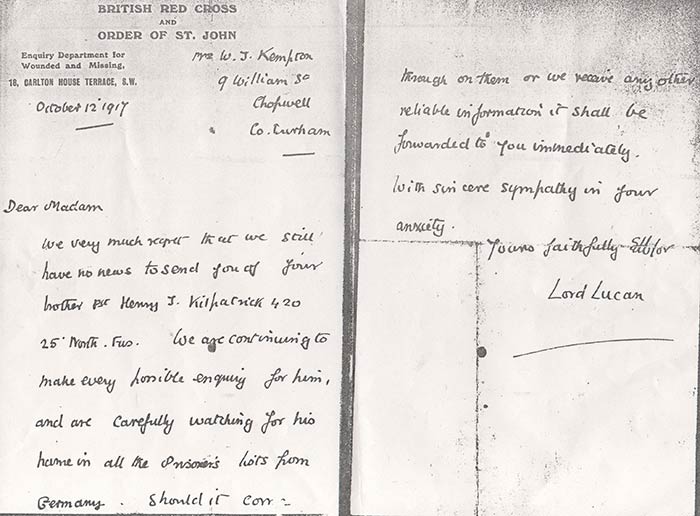 BRITISH RED CROSS
AND
ORDER OF ST. JOHN
Enquiry Department for
Wounded and Missing,
18, CARLTON HOUSE TERRACE, S.W.
October 12 1917
Mrs W. J. Kempton
9 William St
Chopwell
Co. Durham
Dear Madam
We very much regret that we still
have no news to send you of your
brother Pte Henry J. Kilpatrick 420
25 North. Fus. We are continuing to
make every possible enquiry for him,
and are carefully watching for his
name in all the Prisoners lists from
Germany. Should it com =
through on them or we receive any other
reliable information it shall be
forwarded to you immediately.
With sincere sympathy in your
anxiety.
Yours faithfully for
Lord Lucan